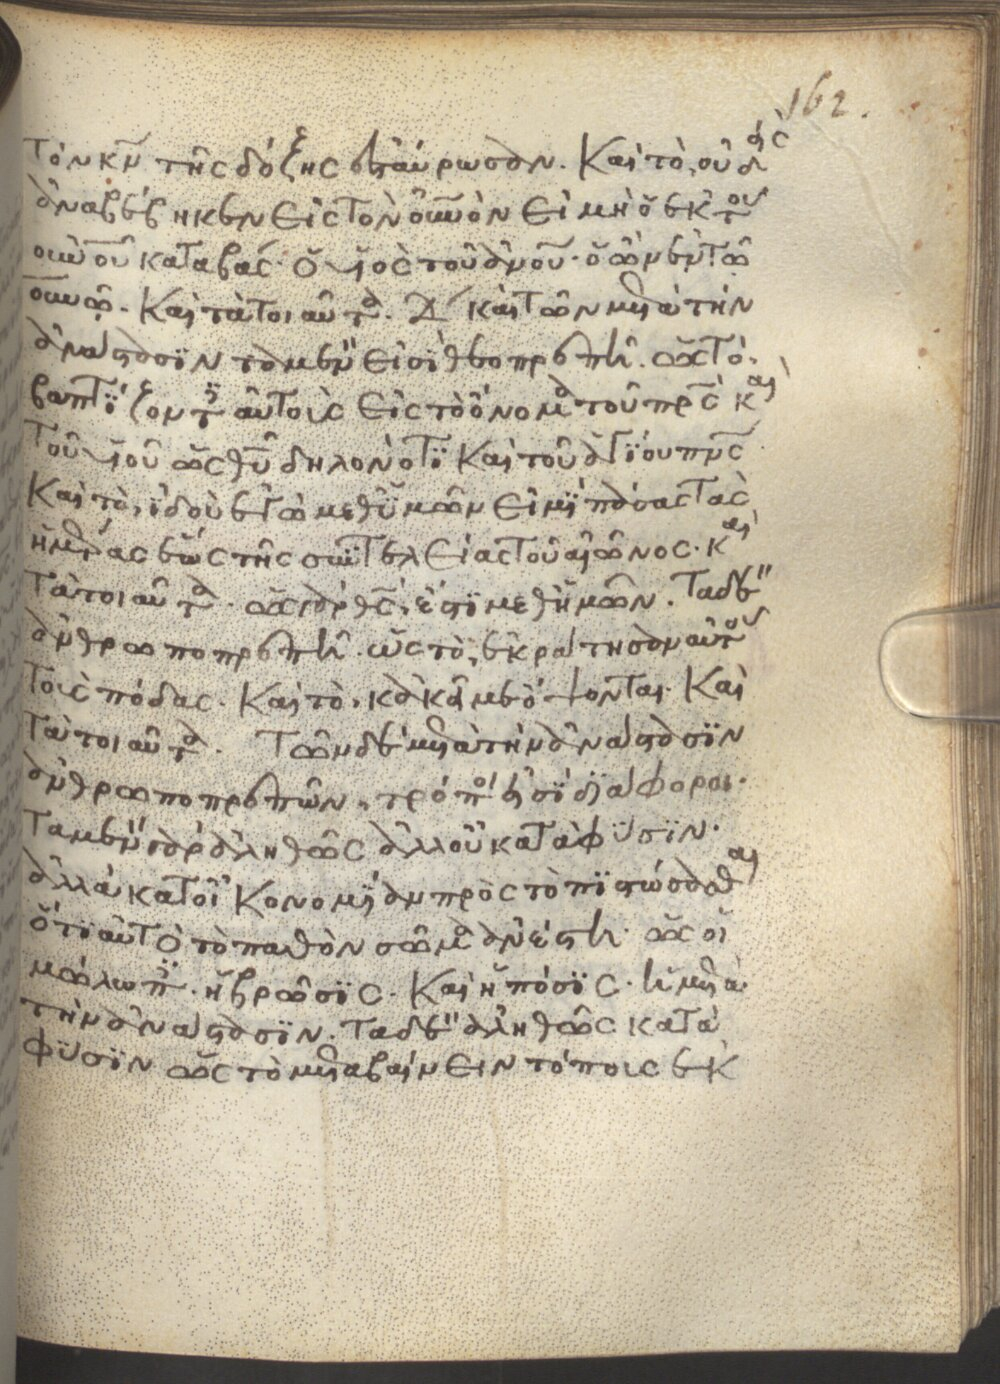 162.
Τὸν κν̄ τῆς δόξης ἐσταύρωσαν. Καὶ τὸ, οὐδεὶς
ἀναβέβηκεν εἰς τὸν οὐνὸν εἰ μὴ ὁ ἐκ τοῦ
οὐνοῦ καταβάς· ὁ υἱὸς τοῦ ἀνου· ὁ ὢν ἐν τῶ
οὐνῶ. Καὶ τὰ τοιαῦτα. Δ καὶ τῶν μετὰ τὴν
ἀνάστασϊν τὰ μέν εἰσϊ θεοπρεπῆ. ὡς τό·
βαπτΐζοντες αὐτοὺς εἰς τὸ ὄνομα τοῦ πρς καὶ
τοῦ υἱοῦ ὡς θυ δηλονότϊ καὶ τοῦ ἁγΐου πνς
Καὶ τὸ, ἰδοὺ ἐγὼ μεθ ὑμῶν εἰμϊ πάσας τὰς
ἡμέρας ἕως τῆς συντελείας τοῦ αἰῶνος. καὶ
τὰ τοιαῦτα. ὡς γὰρ θς, ἐστϊ μεθ ἡμῶν. Τὰ δὲ
ἀνθρωποπρεπῆ. ὡς τὸ, ἐκράτησαν αὐτοῦ
τοὺς πόδας. Καὶ τὸ, κἀκεῖ με ὄψονται. Καὶ
τὰ τοιαῦτα. Τῶν δὲ μετὰ τὴν ἀνάστασϊν
ἀνθρωποπρεπῶν, τρόποι εἰσϊ διάφοροι.
Τὰ μὲν γὰρ ἀληθῶς ἀλλ οὐ κατὰ φύσϊν.
ἀλλὰ κατ οἰκονομΐαν πρὸς τὸ πϊστώσασθαι
ὅτϊ αὐτὸ τὸ παθὸν σῶμα ἀνέστη. ὡς οἱ
μώλωπες. ἡ βρῶσϊς. Καὶ ἡ πόσϊς. ἡ μετὰ
τὴν ἀνάστασϊν. Τὰ δὲ ἀληθῶς κατὰ
φύσϊν ὡς τὸ μεταβαίνειν τόπους ἐκ